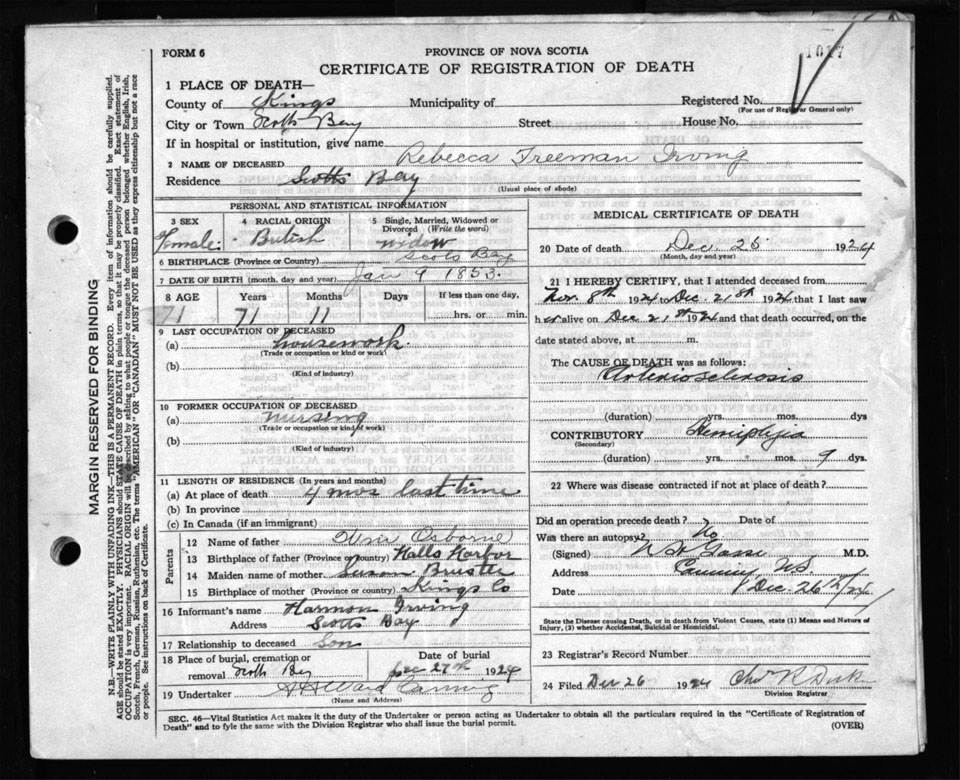 FORM 6
PROVINCE OF NOVA SCOTIA
1017
CERTIFICATE OF REGISTRATION OF DEATH
1 PLACE OF DEATH—
County of Kings Municipality of Registered No.
(For use of Registrar General only)
City or Town Scotts Bay Street House No.
If in hospital or institution, give name
2 NAME OF DECEASED Rebecca Freeman Irving
Residence Scotts Bay
(Usual place of abode)
PERSONAL AND STATISTICAL INFORMATION
3 SEX Female
4 RACIAL ORIGIN British
5 Single, Married, Widowed or Divorced (Write the word) widow
6 BIRTHPLACE (Province or Country) Scots Bay
7 DATE OF BIRTH (month, day and year) Jan 9 1853
8 AGE Years Months Days If less than one day,
71 71 11 hrs. or min.
9 LAST OCCUPATION OF DECEASED
(a) housework
(Trade or occupation or kind or work)
(b)
(Kind of industry)
10 FORMER OCCUPATION OF DECEASED
(a) nursing
(Trade or occupation or kind of work)
(b)
(Kind of industry)
11 LENGTH OF RESIDENCE (In years and months)
(a) At place of death 4 mos last time
(b) In province
(c) In Canada (if an immigrant)
Parents
12 Name of father Osborne
13 Birthplace of father (Province or Country) Halls Harbor
14 Maiden name of mother Susan
15 Birthplace of mother (Province or country) Kings Co
16 Informant's name Harmon Irving
Address Scotts Bay
17 Relationship to deceased Son
18 Place of burial, cremation or removal Scotts Bay
Date of burial Dec 27th 1924
19 Undertaker Ward Canning
(Name and Address)
MEDICAL CERTIFICATE OF DEATH
20 Date of death Dec. 25 1924
(Month, day and year)
21 I HEREBY CERTIFY, that I attended deceased from
Nov. 8th 1924 to Dec. 21st 1924 that I last saw
her alive on Dec 21st 1924 and that death occurred, on the
date stated above, at m.
The CAUSE OF DEATH was as follows:
Arteriosclerosis
(duration) yrs. mos. dys
CONTRIBUTORY Hemiplegia
(Secondary)
(duration) yrs. mos. 9 dys.
22 Where was disease contracted if not at place of death?
Did an operation precede death? No Date of
Was there an autopsy?
(Signed) M.D.
Address Canning, NS
Date Dec. 26th/24
State the Disease causing Death, or in death from Violent Causes, state (1) Means and Nature of
Injury, (2) whether Accidental, Suicidal or Homicidal.
23 Registrar's Record Number
24 Filed Dec 26 1924
Division Registrar
SEC. 46—Vital Statistics Act makes it the duty of the Undertaker or person acting as Undertaker to obtain all the particulars required in the "Certificate of Registration of
Death" and to fyle the same with the Division Registrar who shall issue the burial permit.
(OVER)
MARGIN RESERVED FOR BINDING
N.B.—WRITE PLAINLY WITH UNFADING INK—THIS IS A PERMANENT RECORD. Every item of information should be carefully supplied.
AGE should be stated EXACTLY. PHYSICIANS should STATE CAUSE OF DEATH in plain terms, so that it may be properly classified. Exact statement of
OCCUPATION is very important. RACIAL ORIGIN will be described by stating to what people or tongue the deceased person belonged whether English, Irish,
Scotch, French, German, Russian, Ruthenian, etc. The terms "AMERICAN" OR "CANADIAN" MUST NOT BE USED as they express citizenship but not a race
or people. See instructions on back of Certificate.